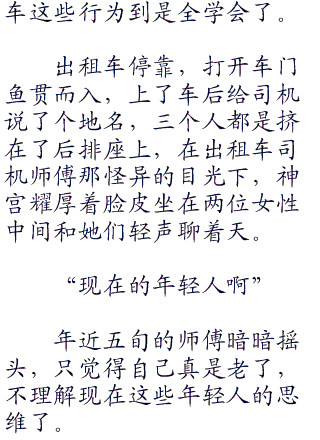 车这些行为到是全学会了。
出租车停靠，打开车门
鱼贯而入，上了车后给司机
说了个地名，三个人都是挤
在了后排座上，在出租车司
机师傅那怪异的目光下，神
宫耀厚着脸皮坐在两位女性
中间和她们轻声聊着天。
“现在的年轻人啊”
年近五旬的师傅暗暗摇
头，只觉得自己真是老了，
不理解现在这些年轻人的思
维了。